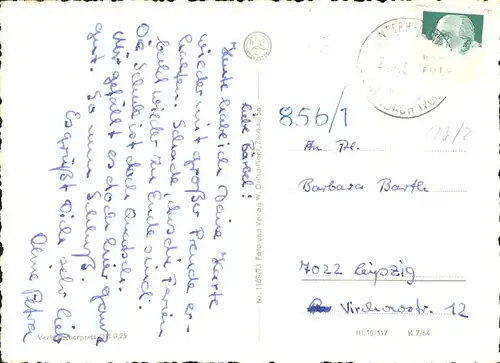 Liebe Bärbel!
Heute habe ich Deine Karte
wieder mit großer Freude er-
halten. Schade, dass die Ferien
bald wieder zu Ende sind.
Die Schule ist doch Quatsch.
Mir gefällt es doch hier ganz
gut. So nun Schluß!
Es grüßt Dich sehr lieb
Deine Petra
Verbraucherpreis DM 0,25
Nr. 1103/73 Foto und Verlag W.
856/1
An Frl.
Barbara Barthe
7022 Leipzig
Virchowstr. 12
III/18/117 K 7/64